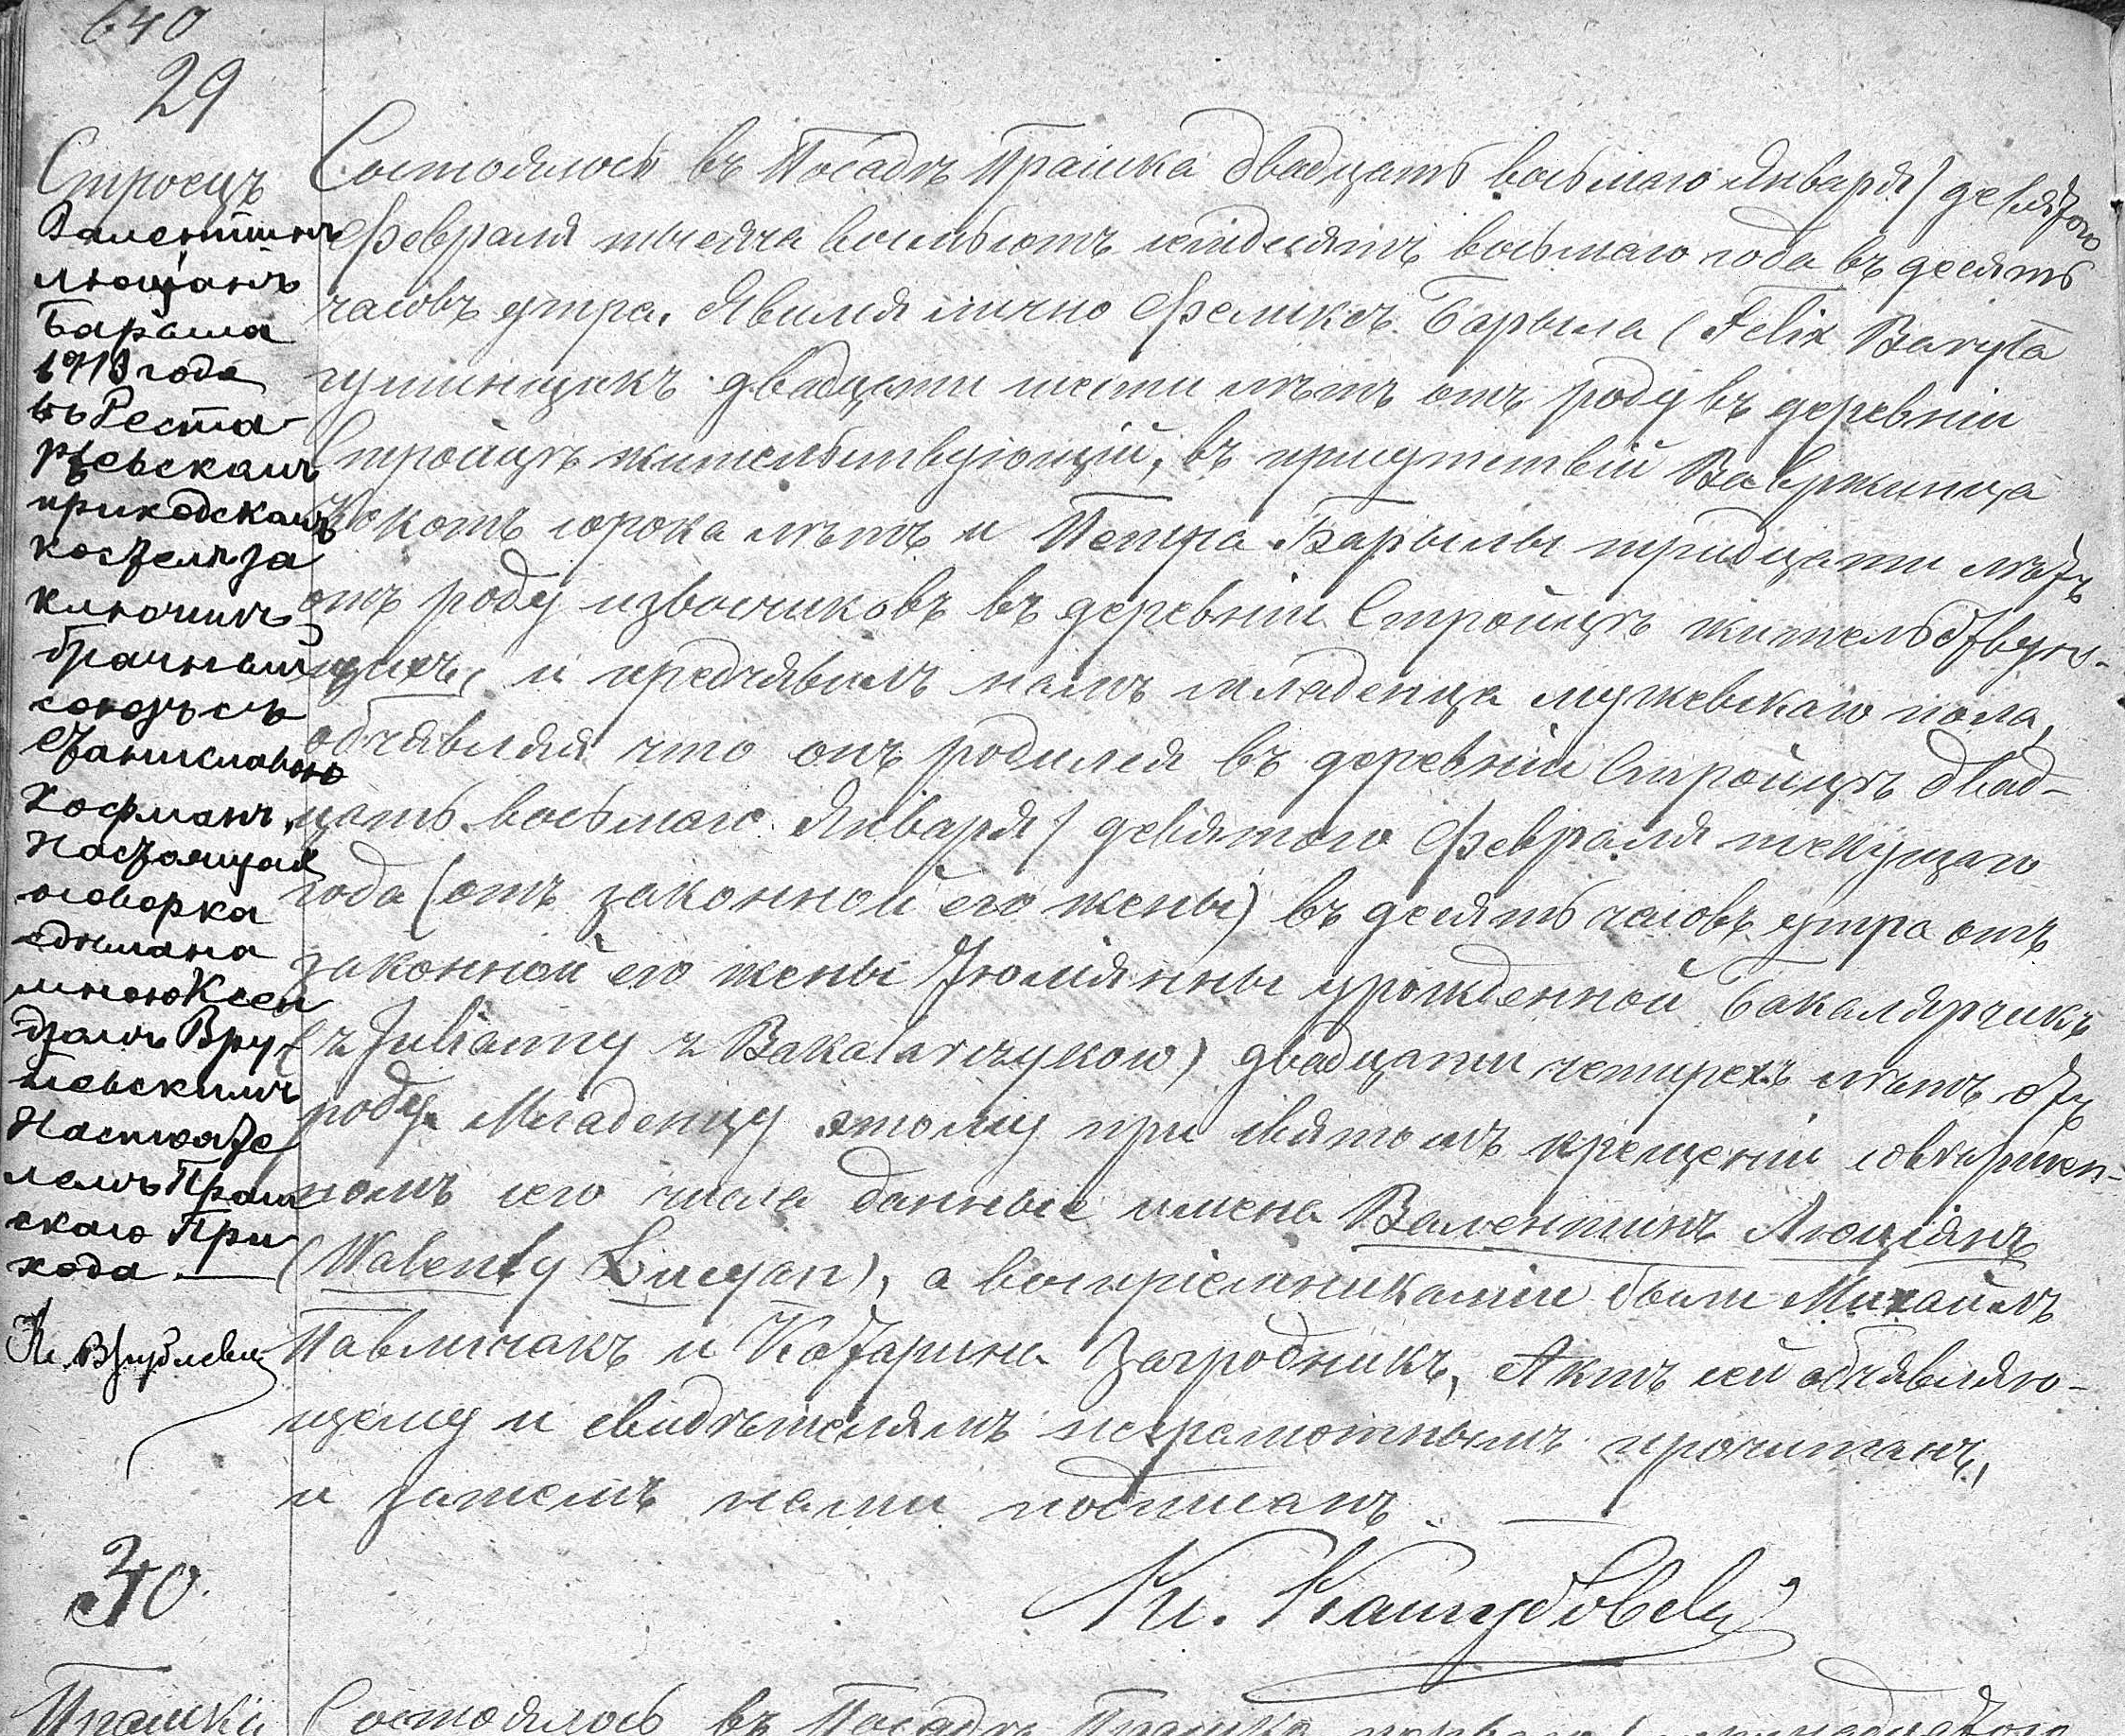 640
29
Строецъ
Валентинъ
Люціанъ
Барыла
1913 года
въ Реста-
рзевскомъ
приходскомъ
костелѣ за
ключилъ
брачный
союзъ съ
Станиславою
Хофманъ.
Настоящая
оговорка
сдѣлана
мною Ксен
дзомъ Вру
блевскимъ
Настояте
лемъ Праш
скаго При
хода —
Кс. Врублевск
Состоялось въ Посадѣ Прашка двадцать восьмаго Января / девятого
Февраля тысяча восемьсотъ семьдесятъ восьмаго года въ десять
часовъ утра. Явился лично Феликсъ Барыла (Felix Baryła
двадцати шести лѣтъ отъ роду въ деревніи
Стройцѣ жительствующій, въ присутствіи Вавржинца
Кокотъ сорока лѣтъ и Петра Барылы тридцати лѣтъ
отъ роду извосчиковъ въ деревніи Стройцѣ жительствую-
щихъ, и предъявилъ намъ младенца мужевскаго пола,
объявляя что онъ родился въ деревніи Стройцѣ двад-
цать восьмаго Января / девятого Февраля текущаго
года (отъ законной его жены) въ десять часовъ утра отъ
законной его жены Юліянны урожденной Бакалярчикъ
(z Julianny z Bakalarczyków) двадцати четырехъ лѣтъ отъ
роду. Младенцу этому при святомъ крещеніи совершен-
номъ сего числа данные имена Валентинъ Люціянъ
(Walenty Lucyan), а воспріемниками были Михаилъ
Павличакъ и Катарина Загродникъ, Актъ сей объявляю-
щему и свидѣтелямъ неграмотнымъ прочитанъ,
и затемъ нами подписанъ. —
Кс. Кашубовскі
30.
Прашка
Состоялось въ Посадѣ Прашка